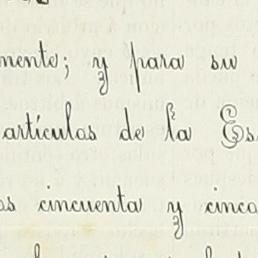 mente; y para su
artículos de la Es
os cincuenta y cinco